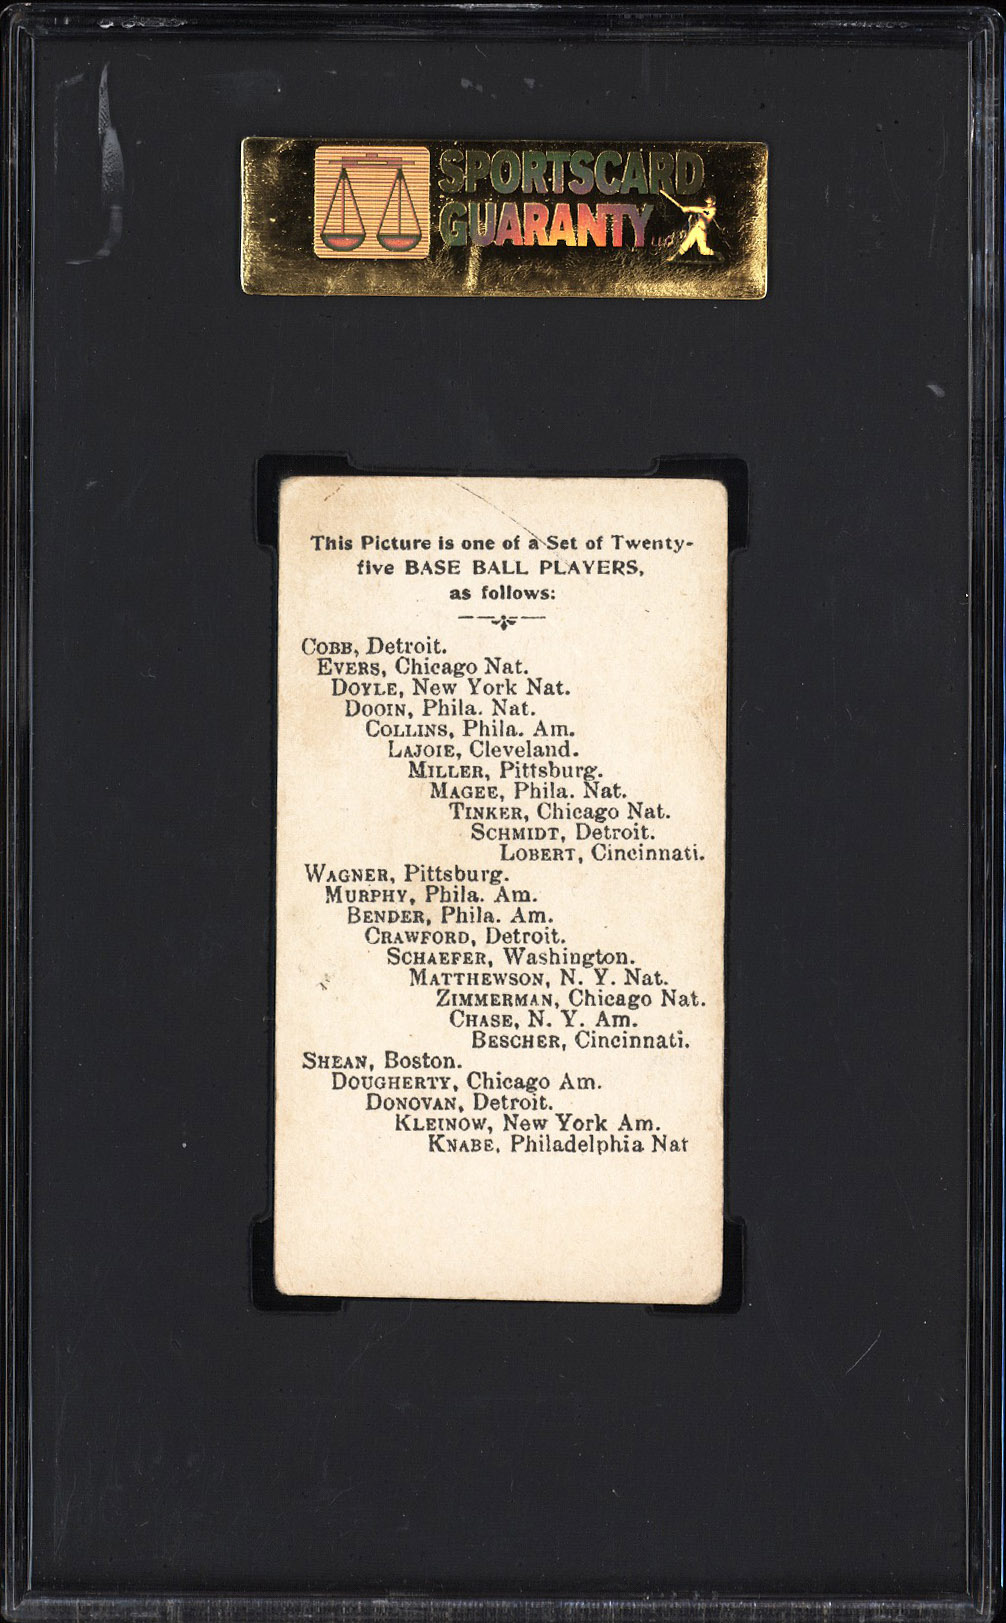 SPORTSCARD
GUARANTY
This Picture is one of a Set of Twenty-
five BASE BALL PLAYERS,
as follows:
COBB, Detroit.
EVERS, Chicago Nat.
DOYLE, New York Nat.
DOOIN, Phila. Nat.
COLLINS, Phila. Am.
LAJOIE, Cleveland.
MILLER, Pittsburg.
MAGEE, Phila. Nat.
TINKER, Chicago Nat.
SCHMIDT, Detroit.
LOBERT, Cincinnati.
WAGNER, Pittsburg.
MURPHY, Phila. Am.
BENDER, Phila. Am.
CRAWFORD, Detroit.
SCHAEFER, Washington.
MATTHEWSON, N. Y. Nat.
ZIMMERMAN, Chicago Nat.
CHASE, N. Y. Am.
BESCHER, Cincinnati.
SHEAN, Boston.
DOUGHERTY, Chicago Am.
DONOVAN, Detroit.
KLEINOW, New York Am.
KNABE, Philadelphia Nat